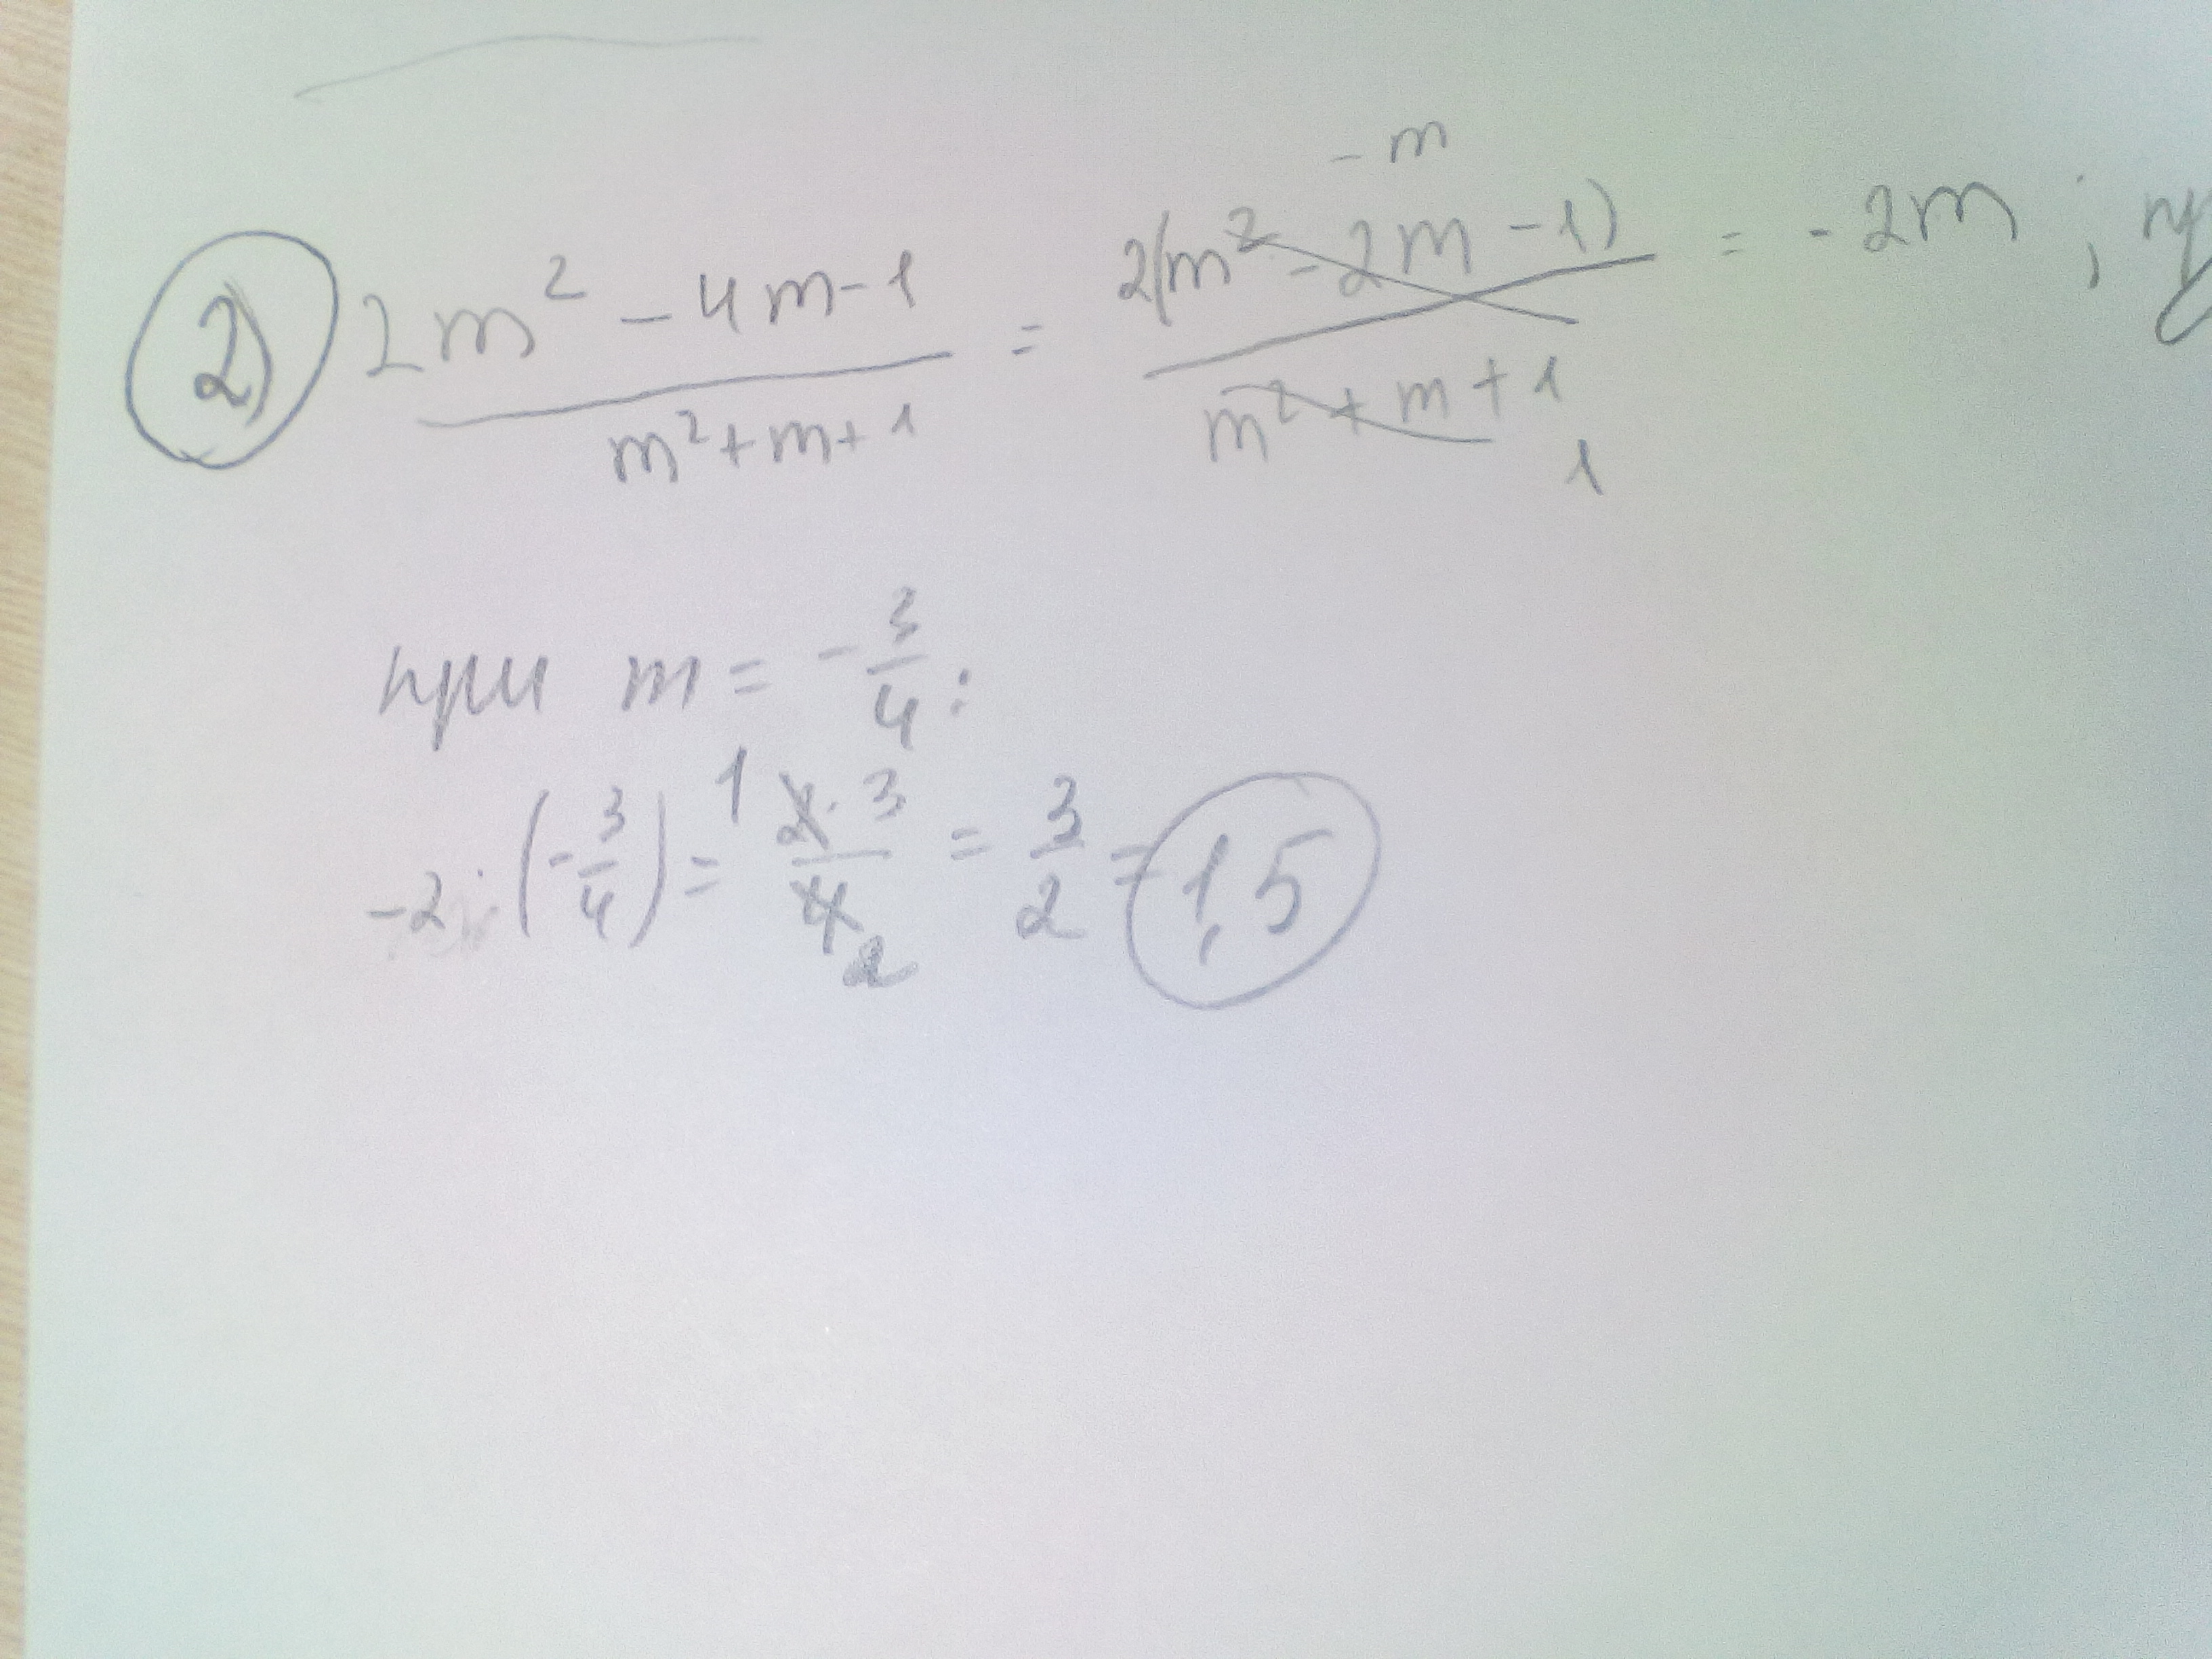 2) (2m² - 4m - 1)/(m² + m + 1) = 2(m² - 2m - 1)/(m² + m + 1) = -2m ;
-m
1
при m = -3/4 :
-2 · (-3/4) = 1 2·3/4 2 = 3/2 = 1,5